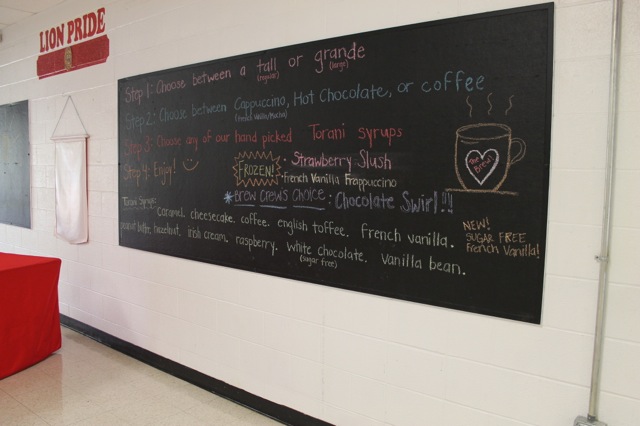 LION PRIDE
Step 1: Choose between a tall or grande
(regular) (large)
Step 2: Choose between Cappuccino, Hot Chocolate, or coffee
(French Vanilla/Mocha)
Step 3: Choose any of our hand picked Torani syrups
Step 4: Enjoy!
FROZEN!
• Strawberry Slush
• French Vanilla Frappuccino
*Brew Crew's Choice: Chocolate Swirl!!!
The Brew
Torani Syrups:
Caramel. cheesecake. coffee. english toffee. French vanilla.
peanut butter. hazelnut. irish cream. raspberry. White chocolate. Vanilla bean.
(sugar free)
NEW!
SUGAR FREE
French Vanilla!